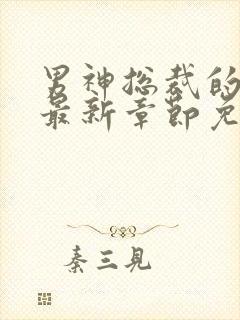 男神总裁的
最新章节免
秦三見